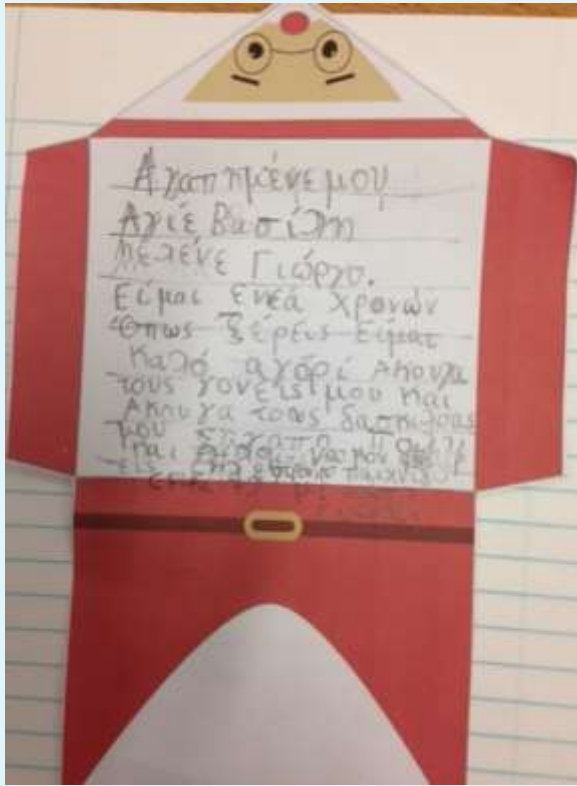 Αγαπημένε μου
Αγιέ Βασίλη
με λένε Γιώργο.
Είμαι ενεά χρονών
Όπως ξέρεις είμαι
καλό αγόρι Ακουγα
τους γονείς μου και
Ακουγα τους δασκάλους
μου σ'αγαπώ
και να μου